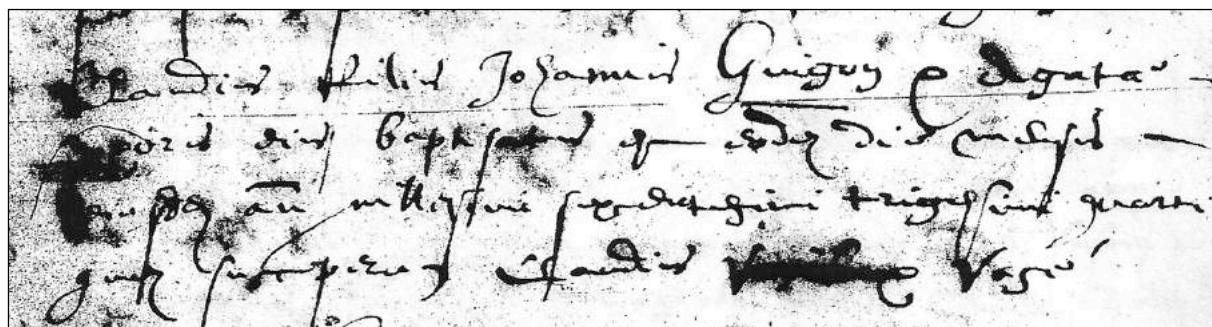 Claudius filius Johannis Guigon & Agatae
uxoris eius baptisatus est eodem die mensis
eiusdem an millesimi sexcentesimi trigesimi quarti
quem susceperunt Claudius Vage